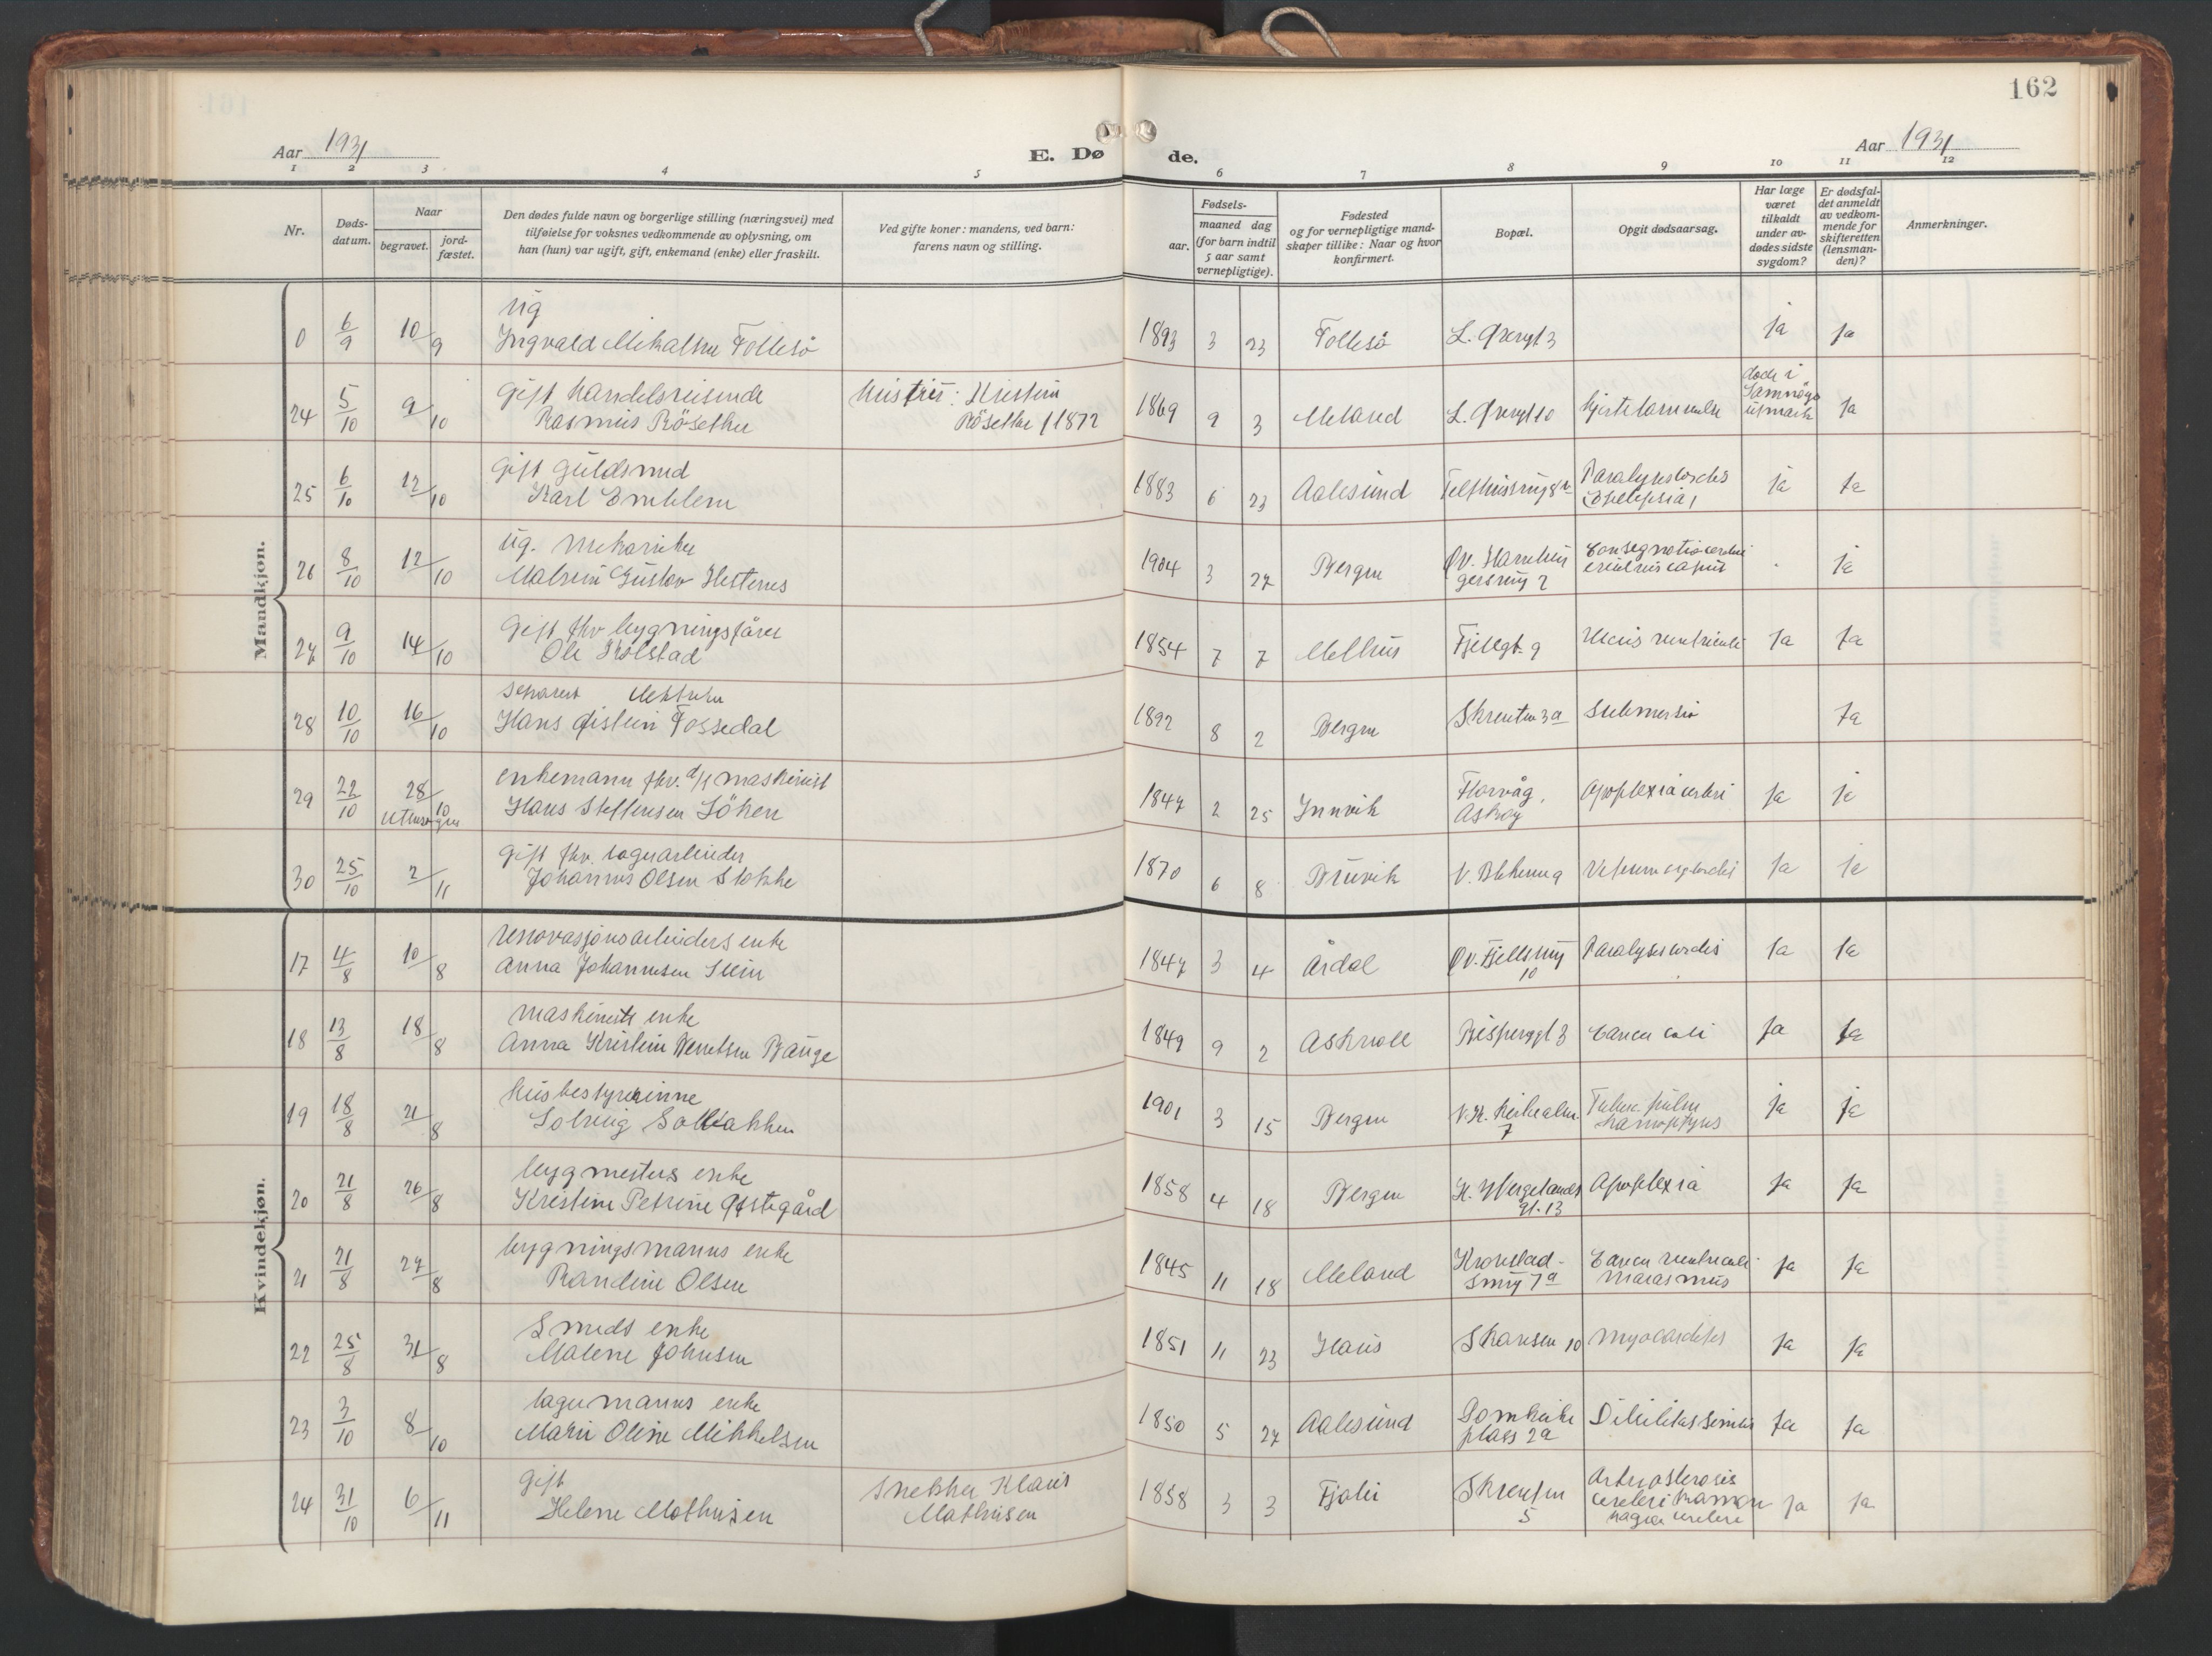 162
Aar 1931
E. Dø de.
Aar 1931
1 2 3 4 5 6 7 8 9 10 11 12
Nr.
Døds-
datum.
Naar
begravet.
jord-
fæstet.
Den dødes fulde navn og borgerlige stilling (næringsvei) med
tilføielse for voksnes vedkommende av oplysning, om
han (hun) var ugift, gift, enkemand (enke) eller fraskilt.
Ved gifte koner: mandens, ved barn:
farens navn og stilling.
Fødsels-
aar.
maaned dag
(for barn indtil
5 aar samt
vernepligtige).
Fødested
og for vernepligtige mand-
skaper tillike: Naar og hvor
konfirmert.
Bopæl.
Opgit dødsaarsag.
Har læge
været
tilkaldt
under av-
dødes sidste
sygdom?
Er dødsfal-
det anmeldt
av vedkom-
mende for
skifteretten
(lensman-
den)?
Anmerkninger.
Mandkjøn.
ug
0 6/9 10/9 Ingvald Mikalsen Follesö 1893 3 23 Follesö ja ja
gift handelsreisende hustru: Kristin døde i
24 5/10 9/10 Rasmus Rösether Rösether f 1872 1869 9 3 Meland hjertelammelse Samnøys ja
utmark
gift guldsmed Paralysis cordis
25 6/10 12/10 Karl Emblem 1883 6 23 Aalesund (Epilepsia) ja ja
ug. mekaniker
26 8/10 12/10 Gustav Hestenes 1904 3 27 Bergen Øv. ja
gift fhv bygningsfører
27 9/10 14/10 Ole Kolstad 1854 7 7 Melhus Fjellgt. 9 Ulcus ventriculi ja ja
separert
28 10/10 16/10 Hans Øistein Fossedal 1892 8 2 Bergen Skreuten 3a Submersio ja
enkemann fhv. d/s maskinist Florvåg,
29 22/10 28/10 Hans Steffensen Söhen 1847 2 25 Innvik Askøy Apoplexia cerebri ja ja
gift fhv. lagerarbeider
30 25/10 2/11 Johannes Olsen Stokke 1870 6 8 Bruvik V. ja ja
Kvindekjøn.
renovasjonsarbeiders enke
17 4/8 10/8 Anna Johannesen Stein 1847 3 4 Årdal Øv. Fjellsmug 10 Paralysis cordis ja ja
maskinists enke
18 13/8 18/8 Anna Kristine Berntsen Bauge 1849 9 2 Askvoll Bispenggt 3 Cancer coli ja ja
husbestyrerinne
19 18/8 21/8 Solveig Solbakken 1901 3 15 Bergen 7 Tuberc. pulm ja ja
hæmoptysis
bygmesters enke
20 21/8 26/8 Kristine Petrine Østegård 1858 4 18 Bergen H. Wergelands gt. 13 Apoplexia ja ja
bygningsmanns enke
21 21/8 27/8 Randine Olsen 1845 11 18 Meland Kronstad-
smug 7a Cancer ventriculi
Marasmus ja ja
Smeds enke
22 25/8 31/8 Malene Johnsen 1851 11 23 Haus Skansen 10 Myocarditis ja ja
lagermanns enke
23 3/10 8/10 Marie Oline Mikkelsen 1850 5 27 Aalesund Domkirke
plass 2a Debilitas senilis ja ja
gift snekker Klaus
24 31/10 6/11 Helene Mathisen Mathisen 1858 3 3 Fjaler Skreuten
5 ja ja